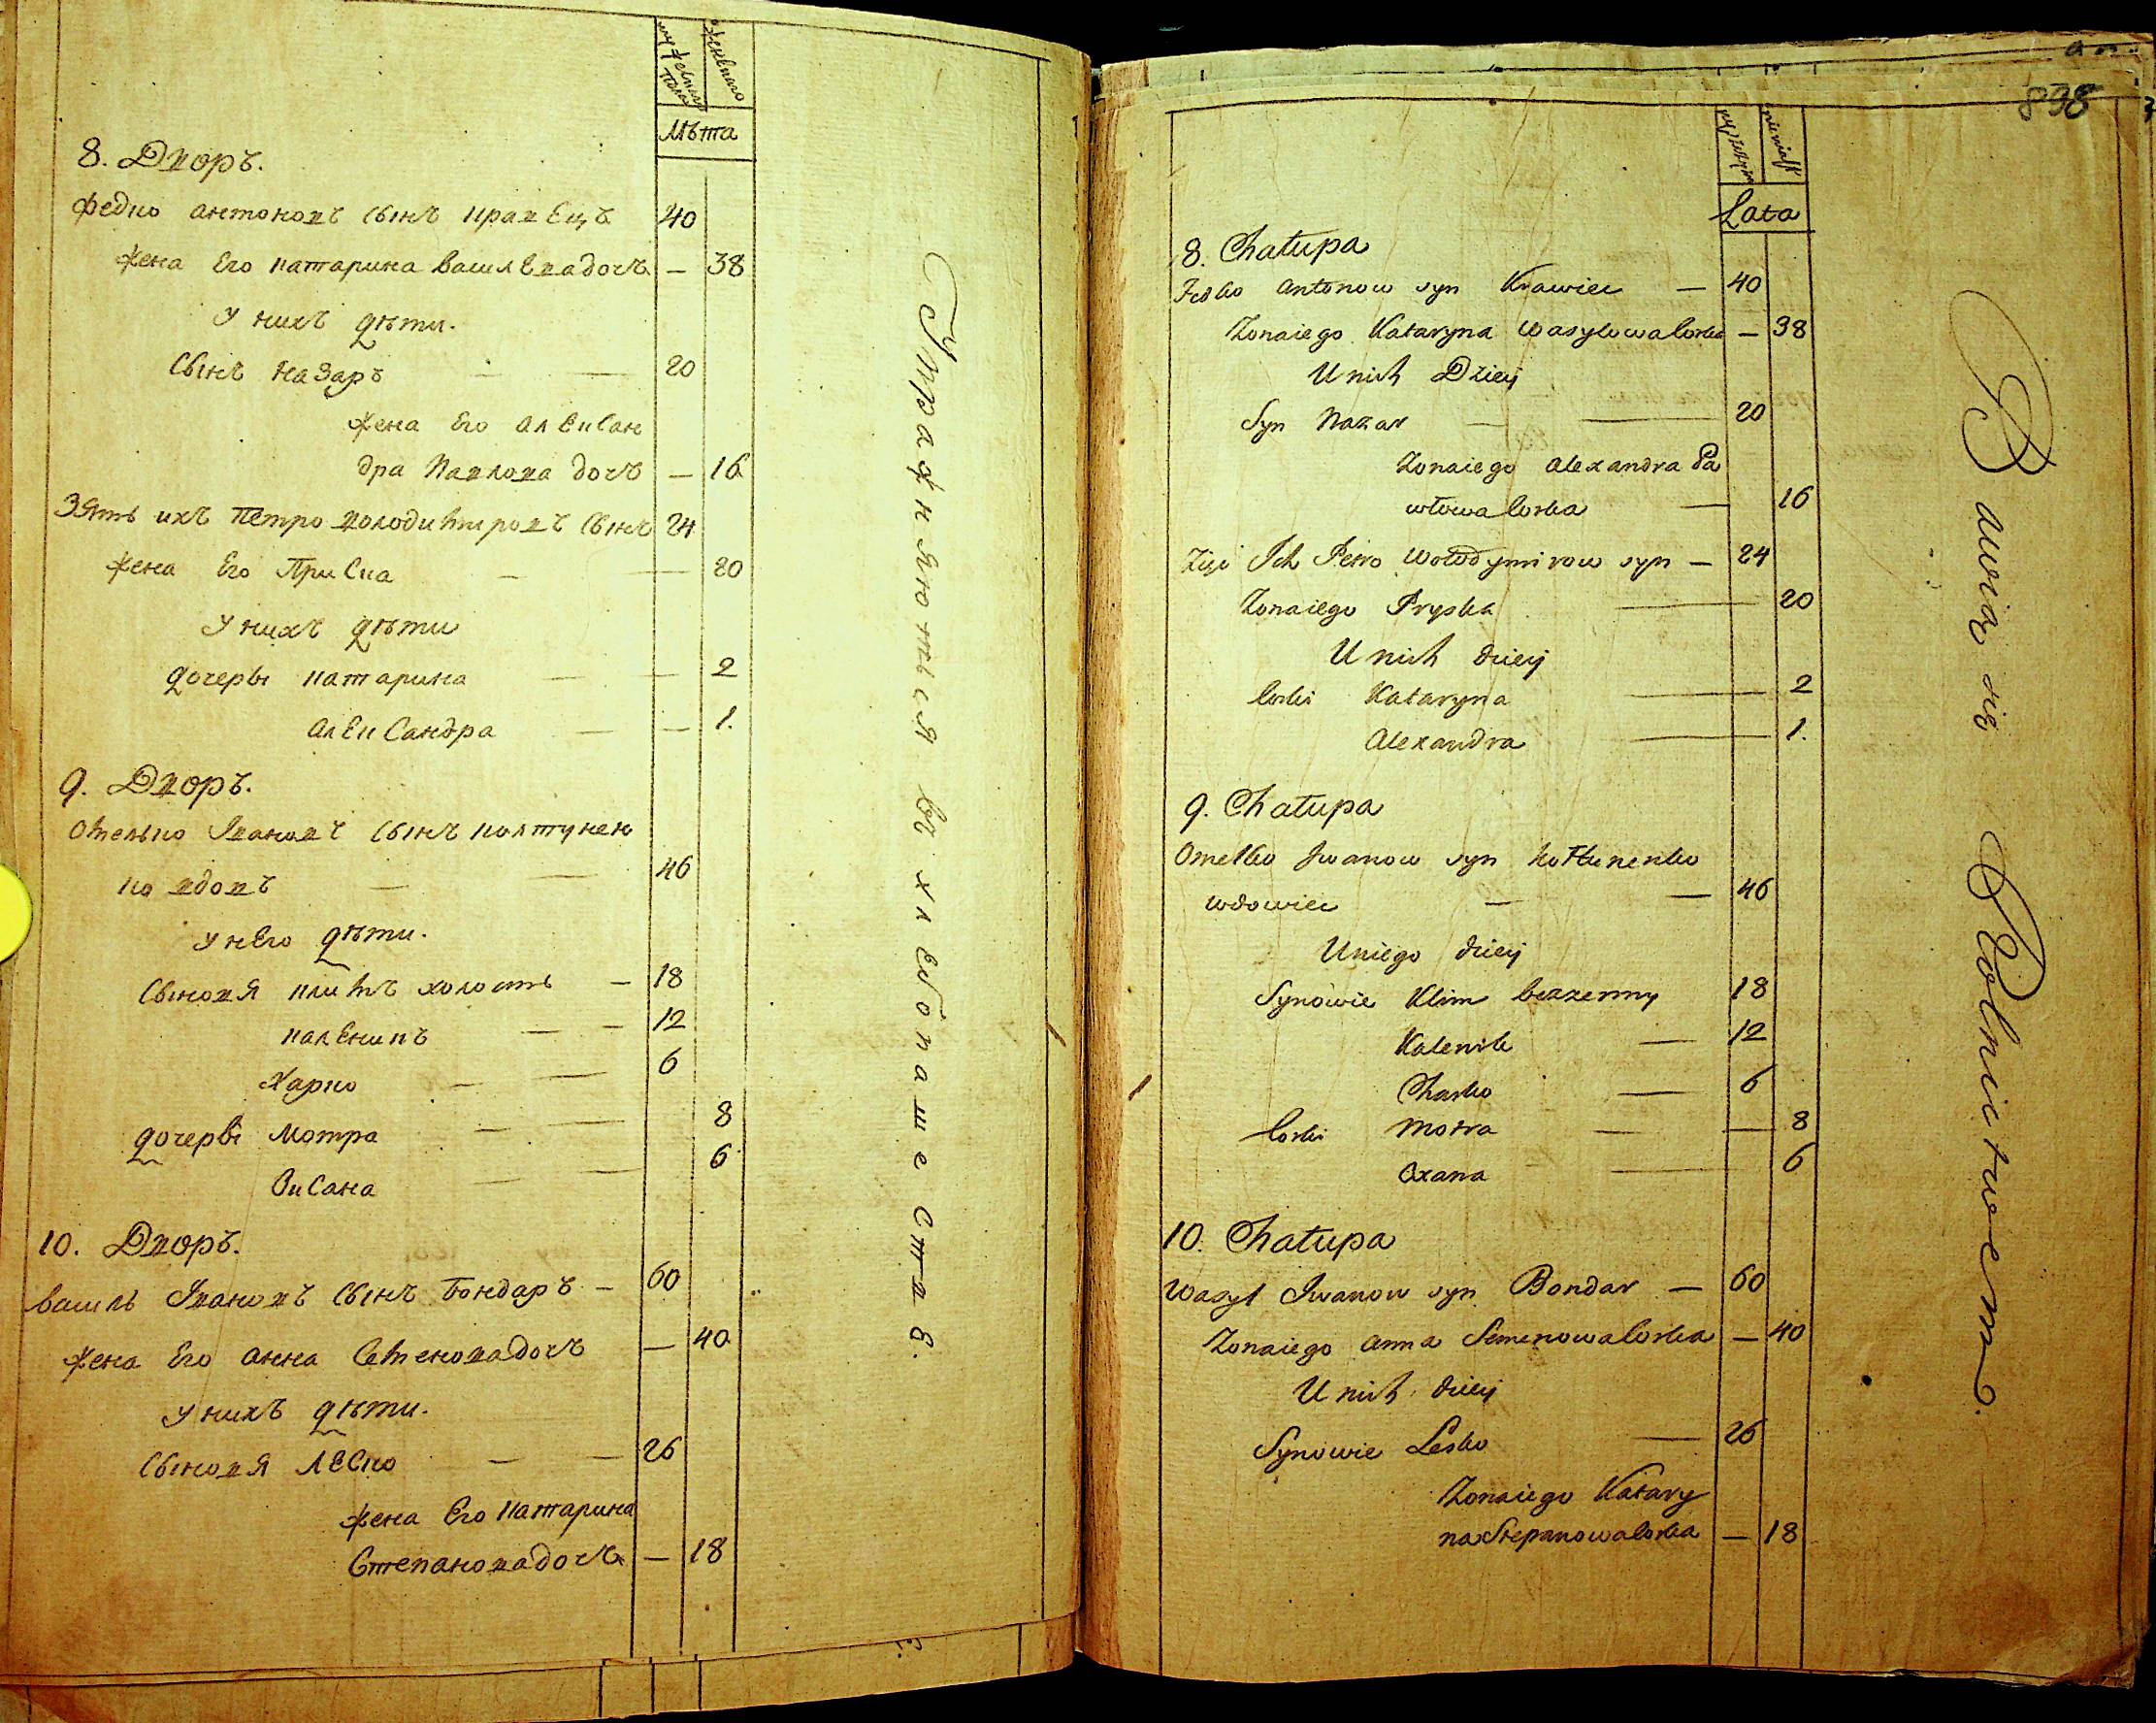 мужеска пола
женскаго
Лѣта
8. Дворъ.
Федко Антоновъ Сынъ Кравецъ 40
Жена Его Катарина Василева дочъ — 38
У нихъ дѣти.
Сынъ Назаръ — — 20
Жена Его АлеКсан
дра Павлова дочъ — 16
Зять ихъ Петро Володимировъ Сынъ 24
Жена Его ПриСка — — 20
У нихъ дѣти
дочеры Катарина — — 2
АлеКСандра — — 1.
9. Дворъ.
Омелько Ивановъ Сынъ Колтунен
ко вдовъ — — 46
У нЕго дѣти.
Сыновя Климъ холостъ — 18
КалЕникъ — — 12
Харко — — 6
дочеры Мотра — — 8
ОкСана — — 6
10. Дворъ.
Василь Ивановъ Сынъ Бондаръ — 60
Жена Его Анна Семенова дочъ — 40
У нихъ дѣти.
Сыновя ЛЕСко — — 26
Жена Его Катарина
Степанова дочъ — 18
Упражняються въ хлебопашестве.
898
męzkiey
niewiast
Lata
8. Chałupa
Fedko Antonow syn Krawiec — 40
Zonaiego Kataryna Wasylowa Corka — 38
U nich Dzieij
Syn Nazar — — 20
Zonaiego Alexandra Pa
włowa Corka — 16
Zięć Ich Petro Wołodymirow syn — 24
Zonaiego Pryska — 20
U nich dzieij
Corki Kataryna — 2
Alexandra — 1.
9. Chałupa
Omelko Iwanow syn Kołtunenko
wdowiec — — 46
U niego dzieij
Synowie Klim bezzenny 18
Kalenik — 12
Charko — 6
Corki Motra — — 8
Oxana — 6
10. Chałupa
Wasyl Iwanow syn Bondar — 60
Zonaiego Anna Semenowa Corka — 40
U nich dzieij
Synowie Lesko — 26
Zonaiego Katary
na Stepanowa Corka — 18
Bawią się Rolnictwem.